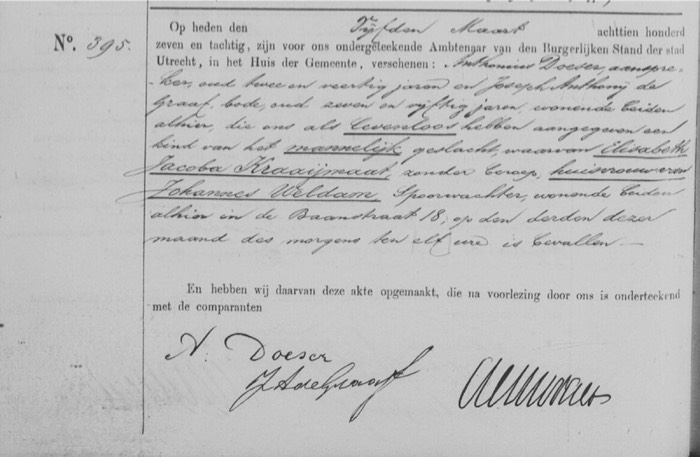 Op heden den Vijfden Maart achttien honderd
N°. 395.
zeven en tachtig, zijn voor ons ondergeteekende Ambtenaar van den Burgerlijken Stand der stad
Utrecht, in het Huis der Gemeente, verschenen: Anthonius Doeser, aanspre-
ker, oud twee en veertig jaren en Joseph Anthonij de
Graaf, bode, oud zeven en vijftig jaren, wonende beiden
alhier, die ons als Levenloos hebben aangegeven een
kind van het mannelijk geslacht, waarvan Elisabeth
Jacoba Kraaijmaat, zonder beroep, huisvrouw van
Johannes Weldam, Spoorwachter, wonende beiden
alhier in de Baanstraat 18, op den derden dezer
maand des morgens ten elf ure is bevallen
En hebben wij daarvan deze akte opgemaakt, die na voorlezing door ons is onderteekend
met de comparanten
A. Doeser
J A de Graaf